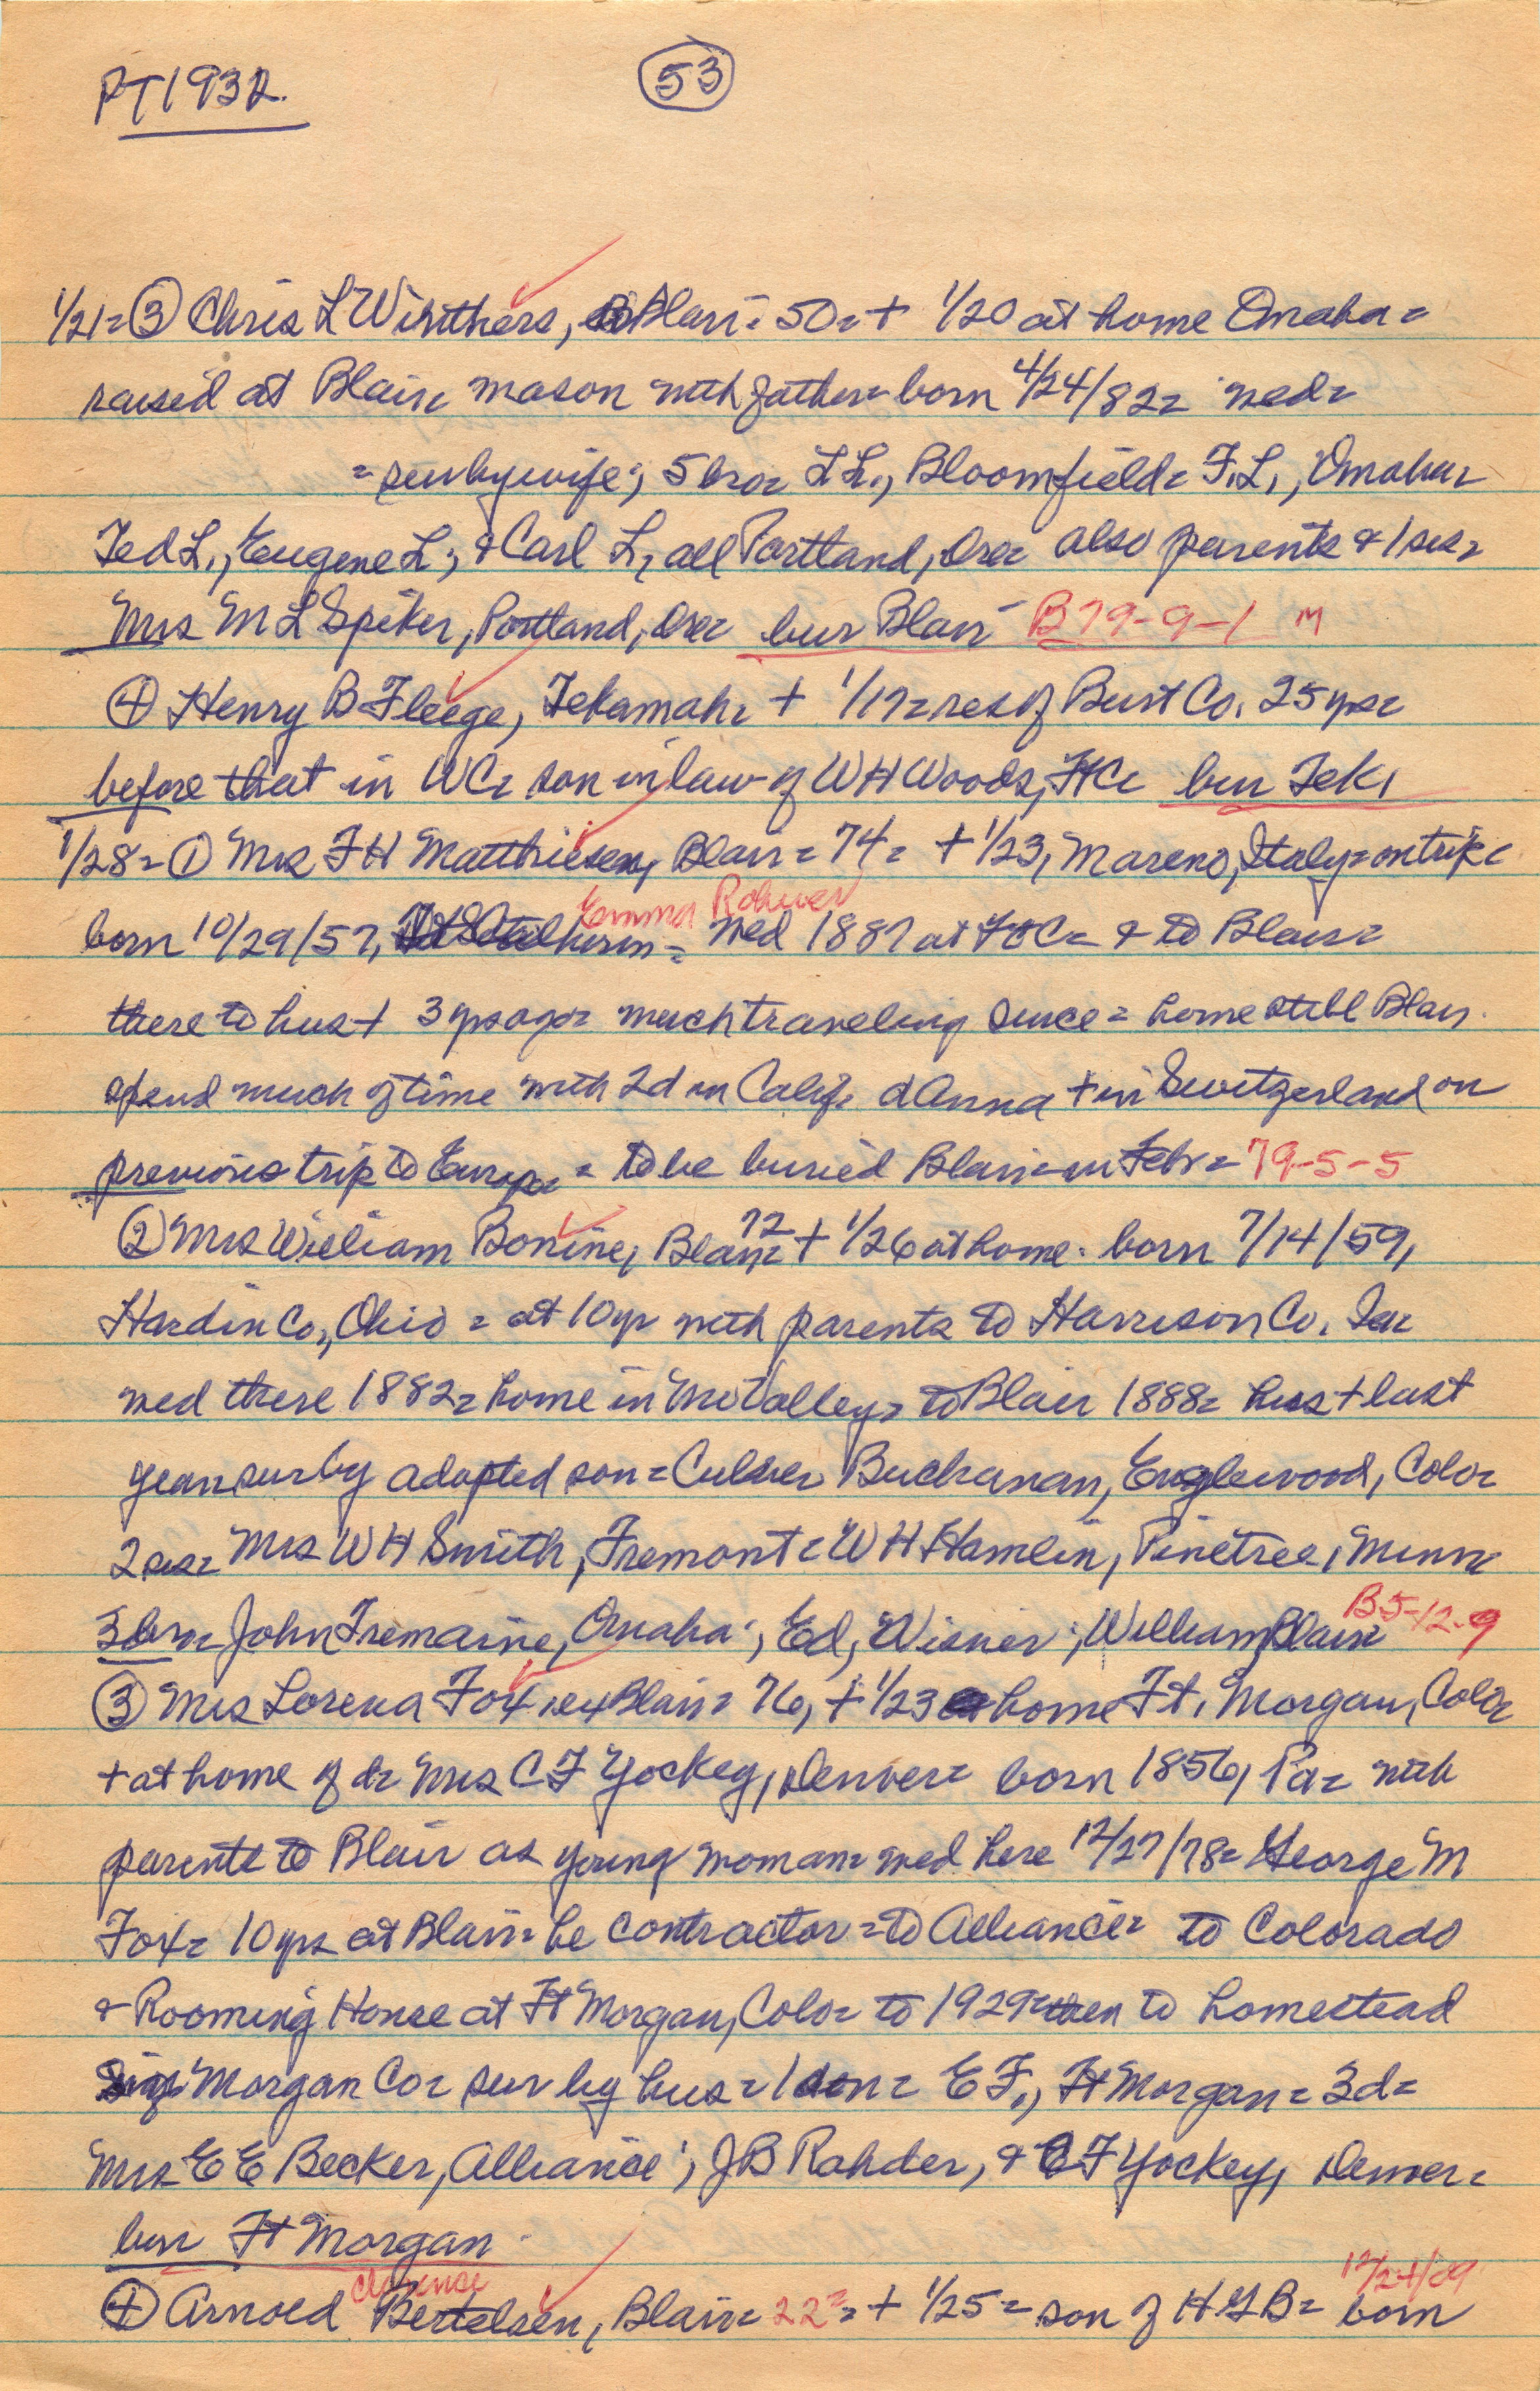 PT 1932.
53
1/21= ③ Chris L Winthers, Blair= 50= + 1/20 at home Omaha=
raised at Blair= mason with father= born 4/24/82= wed=
= surv by wife; 5 bro= L L., Bloomfield= F.L., Omaha=
Ted L., Eugene L; & Carl L, all Portland, Ore= also parents & 1 sis=
Mrs M L Spiker, Portland, Ore= bur Blair B 79-9-1 M
④ Henry B Fleege, Tekamah= + 1/17= res of Burt Co. 25 yrs=
before that in WC= son in law of WH Woods, FtC= bur Tek.
1/28= ① Mrs F H Matthiesen, Blair= 74= + 1/23, Mareno, Italy= on trip=
Emma Rohwer
born 10/29/57, = wed 1887 at FtC= & to Blair=
there to hus + 3 yrs ago= much traveling since= home still Blair.
spend much of time with 2d in Calif= d Anna + in Switzerland on
previous trip to Europe= to be buried Blair= in Feb= 79-5-5
② Mrs William Bonine, Blair= 72 + 1/26 at home. born 7/14/59,
Hardin Co., Ohio= at 10 yr with parents to Harrison Co. Ia=
wed there 1882= home in Mo Valley= to Blair 1888= hus + last
year surv by adopted son= Culver Buchanan, Englewood, Colo=
2 sis= Mrs W H Smith, Fremont= W H Hamlin, Pinetree, Minn=
3 bro= John Tremaine, Omaha; Ed, Wisner; William, Blair= B5-12-9
③ Mrs Lorena Fox, ex Blair= 76, + 1/23 home Ft. Morgan, Colo=
+ at home of d= Mrs C F Yockey, Denver= born 1856, Pa= with
parents to Blair as young woman= wed here 12/27/78= George M
Fox= 10 yrs at Blair= he contractor= to Alliance= to Colorado
& Rooming House at Ft Morgan, Colo= to 1929= then to homestead
Morgan Co= surv by hus= 1 son= E F., Ft Morgan= 3d=
Mrs E E Becker, Alliance; J B Rahder, & C F Yockey, Denver=
bur Ft Morgan
Clarence 12/24/09
④ Arnold Bertelsen, Blair= 22= + 1/25= son of H G B= born